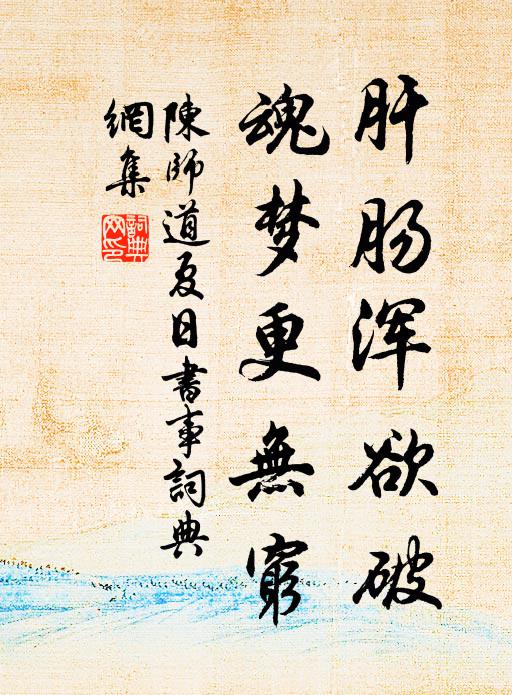 肝肠浑欲破
魂梦更無窮
陳師道夏日書事詞典
網集
詞典
网印